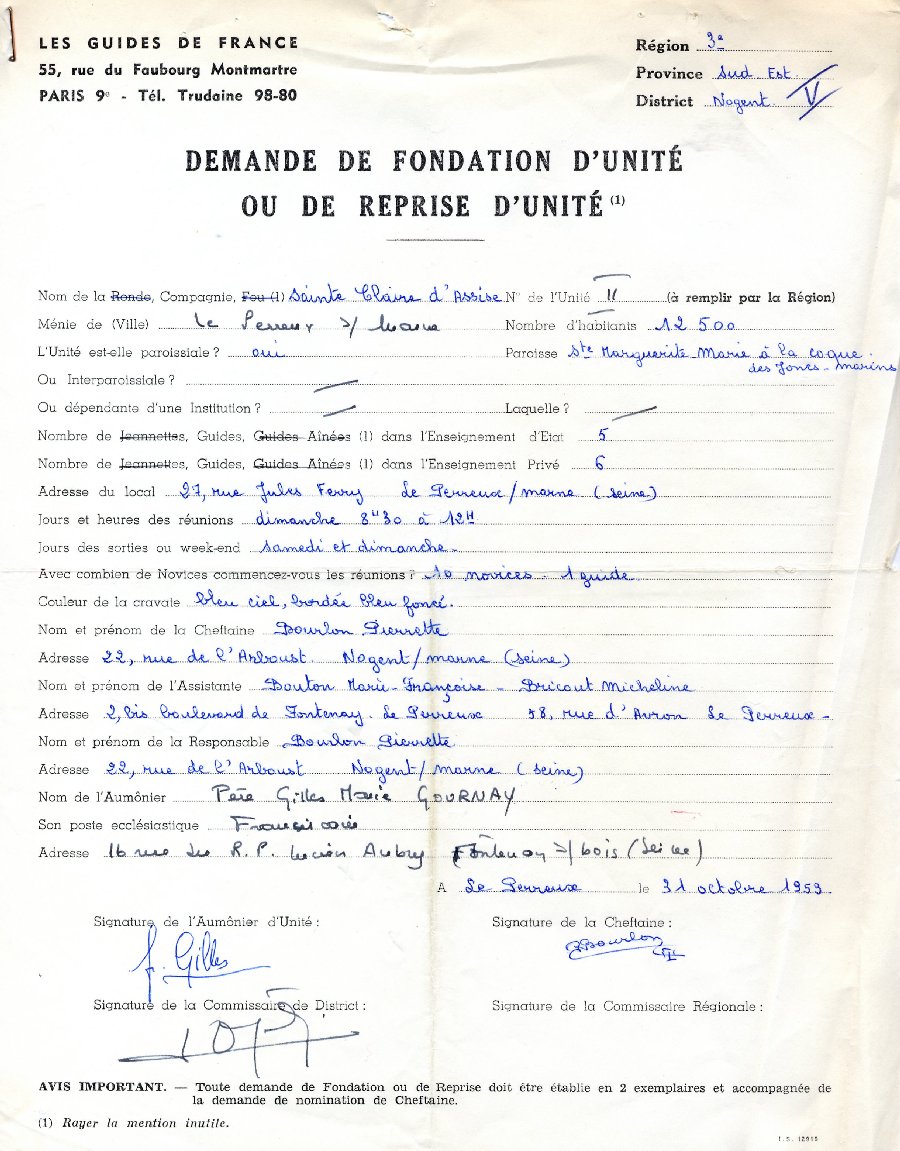 LES GUIDES DE FRANCE
55, rue du Faubourg Montmartre
PARIS 9e - Tél. Trudaine 98-80
Région 3e
Province Sud Est
District Nogent V
DEMANDE DE FONDATION D'UNITÉ
OU DE REPRISE D'UNITÉ (1)
Nom de la Ronde, Compagnie, Feu (1) Sainte Claire d'Assise N° de l'Unité II (à remplir par la Région)
Ménie de (Ville) Le Perreux s/ Marne Nombre d'habitants 12 500
L'Unité est-elle paroissiale ? oui Paroisse Ste Marguerite Marie à la coque.
des Joncs-marins
Ou Interparoissiale ? —
Ou dépendante d'une Institution ? — Laquelle ? —
Nombre de Jeannettes, Guides, Guides Aînées (1) dans l'Enseignement d'Etat 5
Nombre de Jeannettes, Guides, Guides Aînées (1) dans l'Enseignement Privé 6
Adresse du local 27, rue Jules Ferry Le Perreux/marne (seine)
Jours et heures des réunions dimanche 8H30 à 12H
Jours des sorties ou week-end samedi et dimanche-
Avec combien de Novices commencez-vous les réunions ? 10 novices - 1 guide
Couleur de la cravate bleu ciel, bordée bleu foncé.
Nom et prénom de la Cheftaine Bourlon Pierrette
Adresse 22, rue de l'Arboust. Nogent/marne (seine)
Nom et prénom de l'Assistante Bouton Marie-Françoise - Bricout Micheline
Adresse 2, bis boulevard de Fontenay. Le Perreux 58, rue d'Avron Le Perreux -
Nom et prénom de la Responsable Bourlon Pierrette
Adresse 22, rue de l'Arboust Nogent/marne (seine)
Nom de l'Aumônier Père Gilles Marie GOURNAY
Son poste ecclésiastique Franciscain
Adresse 16 rue du R.P. Lucien Aubry Fontenay s/ bois (Seine)
A Le Perreux le 31 octobre 1959
Signature de l'Aumônier d'Unité :
Signature de la Cheftaine :
f. Gilles
PBourlon
Signature de la Commissaire de District :
Signature de la Commissaire Régionale :
AVIS IMPORTANT. — Toute demande de Fondation ou de Reprise doit être établie en 2 exemplaires et accompagnée de
la demande de nomination de Cheftaine.
(1) Rayer la mention inutile.